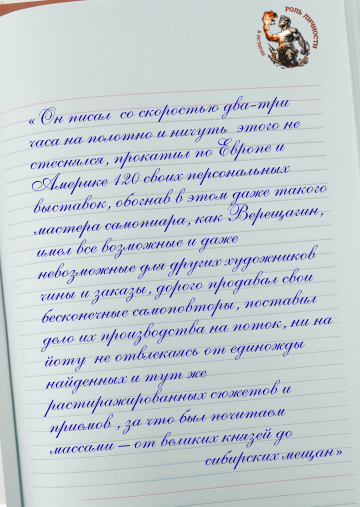 РОЛЬ ЛИЧНОСТИ
В ИСТОРИИ
« Он писал со скоростью два-три
часа на полотно и ничуть этого не
стеснялся, прокатил по Европе и
Америке 120 своих персональных
выставок, обогнав в этом даже такого
мастера самопиара, как Верещагин,
имел все возможные и даже
невозможные для других художников
чины и заказы, дорого продавал свои
бесконечные самоповторы, поставил
дело их производства на поток, ни на
йоту не отвлекаясь от единожды
найденных и тут же
растиражированных сюжетов и
приемов , за что был почитаем
массами – от великих князей до
сибирских мещан»